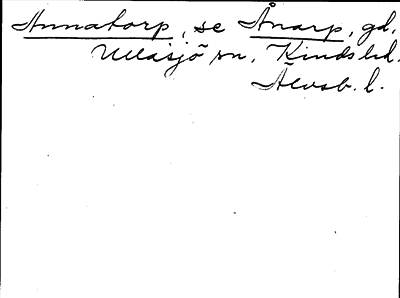 Annatorp, se Ånarp, gd,
Ullasjö sn, Kinds hd.
Älvsb. l.